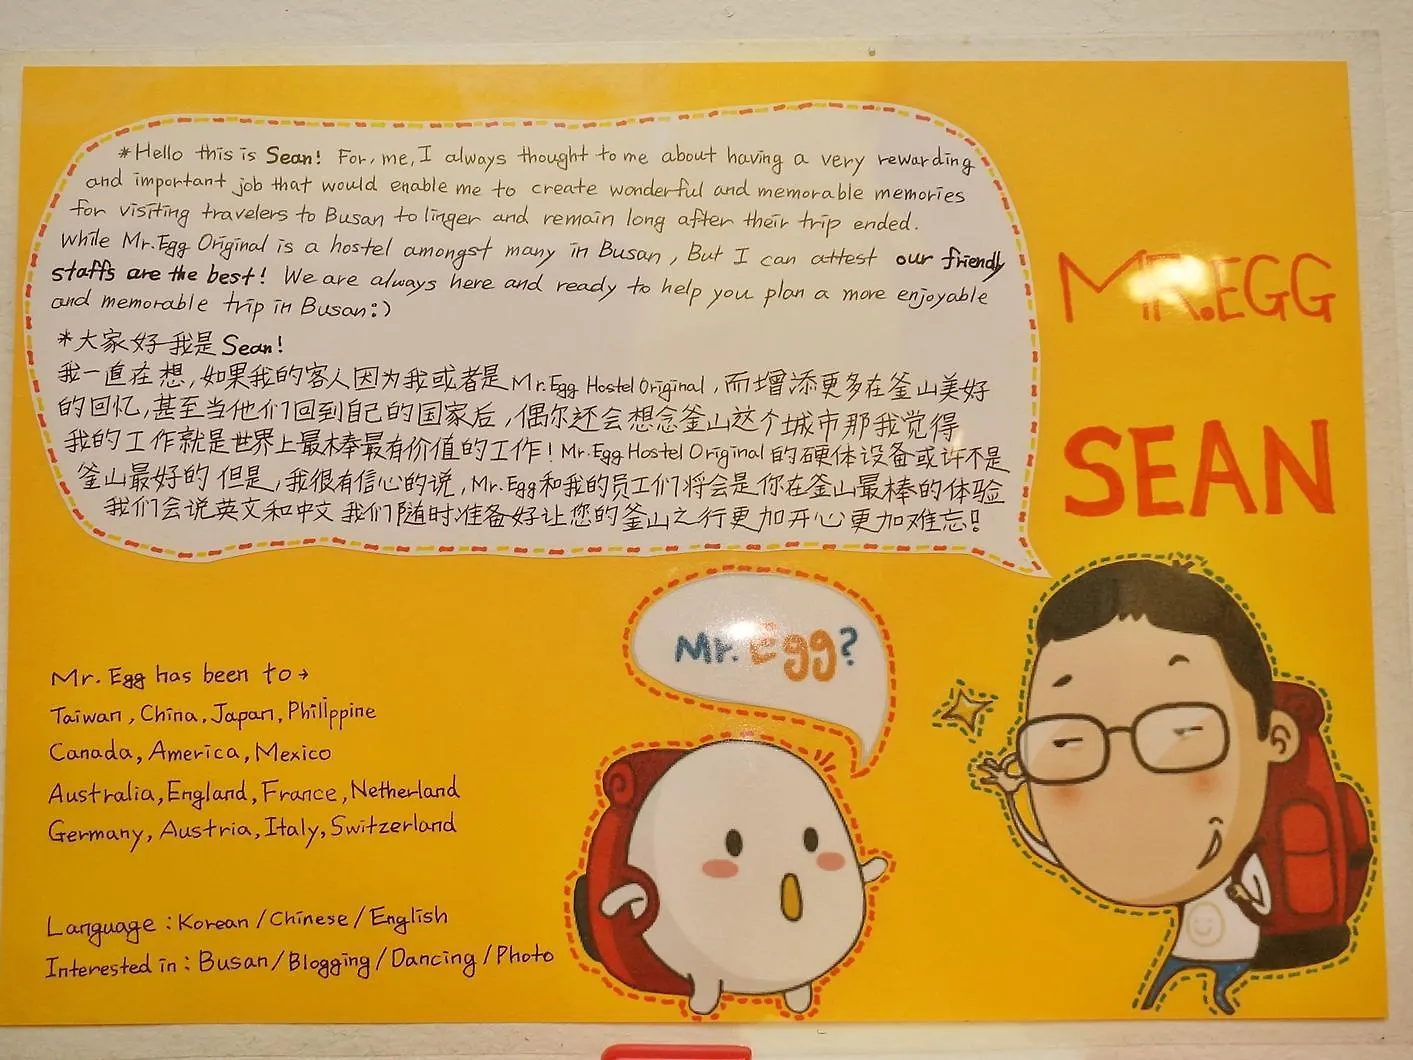 *Hello this is Sean! For, me, I always thought to me about having a very rewarding
and important job that would enable me to create wonderful and memorable memories
for visiting travelers to Busan to linger and remain long after their trip ended.
While Mr.Egg Original is a hostel amongst many in Busan, But I can attest our friendly
staffs are the best! We are always here and ready to help you plan a more enjoyable
and memorable trip in Busan:)
*大家好 我是 Sean!
我一直在想,如果我的客人因为我或者是Mr.Egg Hostel Original,而增添更多在釜山美好
的回忆,甚至当他们回到自己的国家后,偶尔还会想念釜山这个城市那我觉得
我的工作就是世界上最棒最有价值的工作! Mr.Egg Hostel Original的硬体设备或许不是
釜山最好的 但是,我很有信心的说,Mr.Egg和我的员工们将会是你在釜山最棒的体验
我们会说英文和中文 我们随时准备好让您的釜山之行更加开心更加难忘!
MR.EGG
SEAN
Mr. Egg?
Mr. Egg has been to→
Taiwan, China, Japan, Philippine
Canada, America, Mexico
Australia, England, France, Netherland
Germany, Austria, Italy, Switzerland
Language : Korean / Chinese / English
Interested in : Busan / Blogging / Dancing / Photo